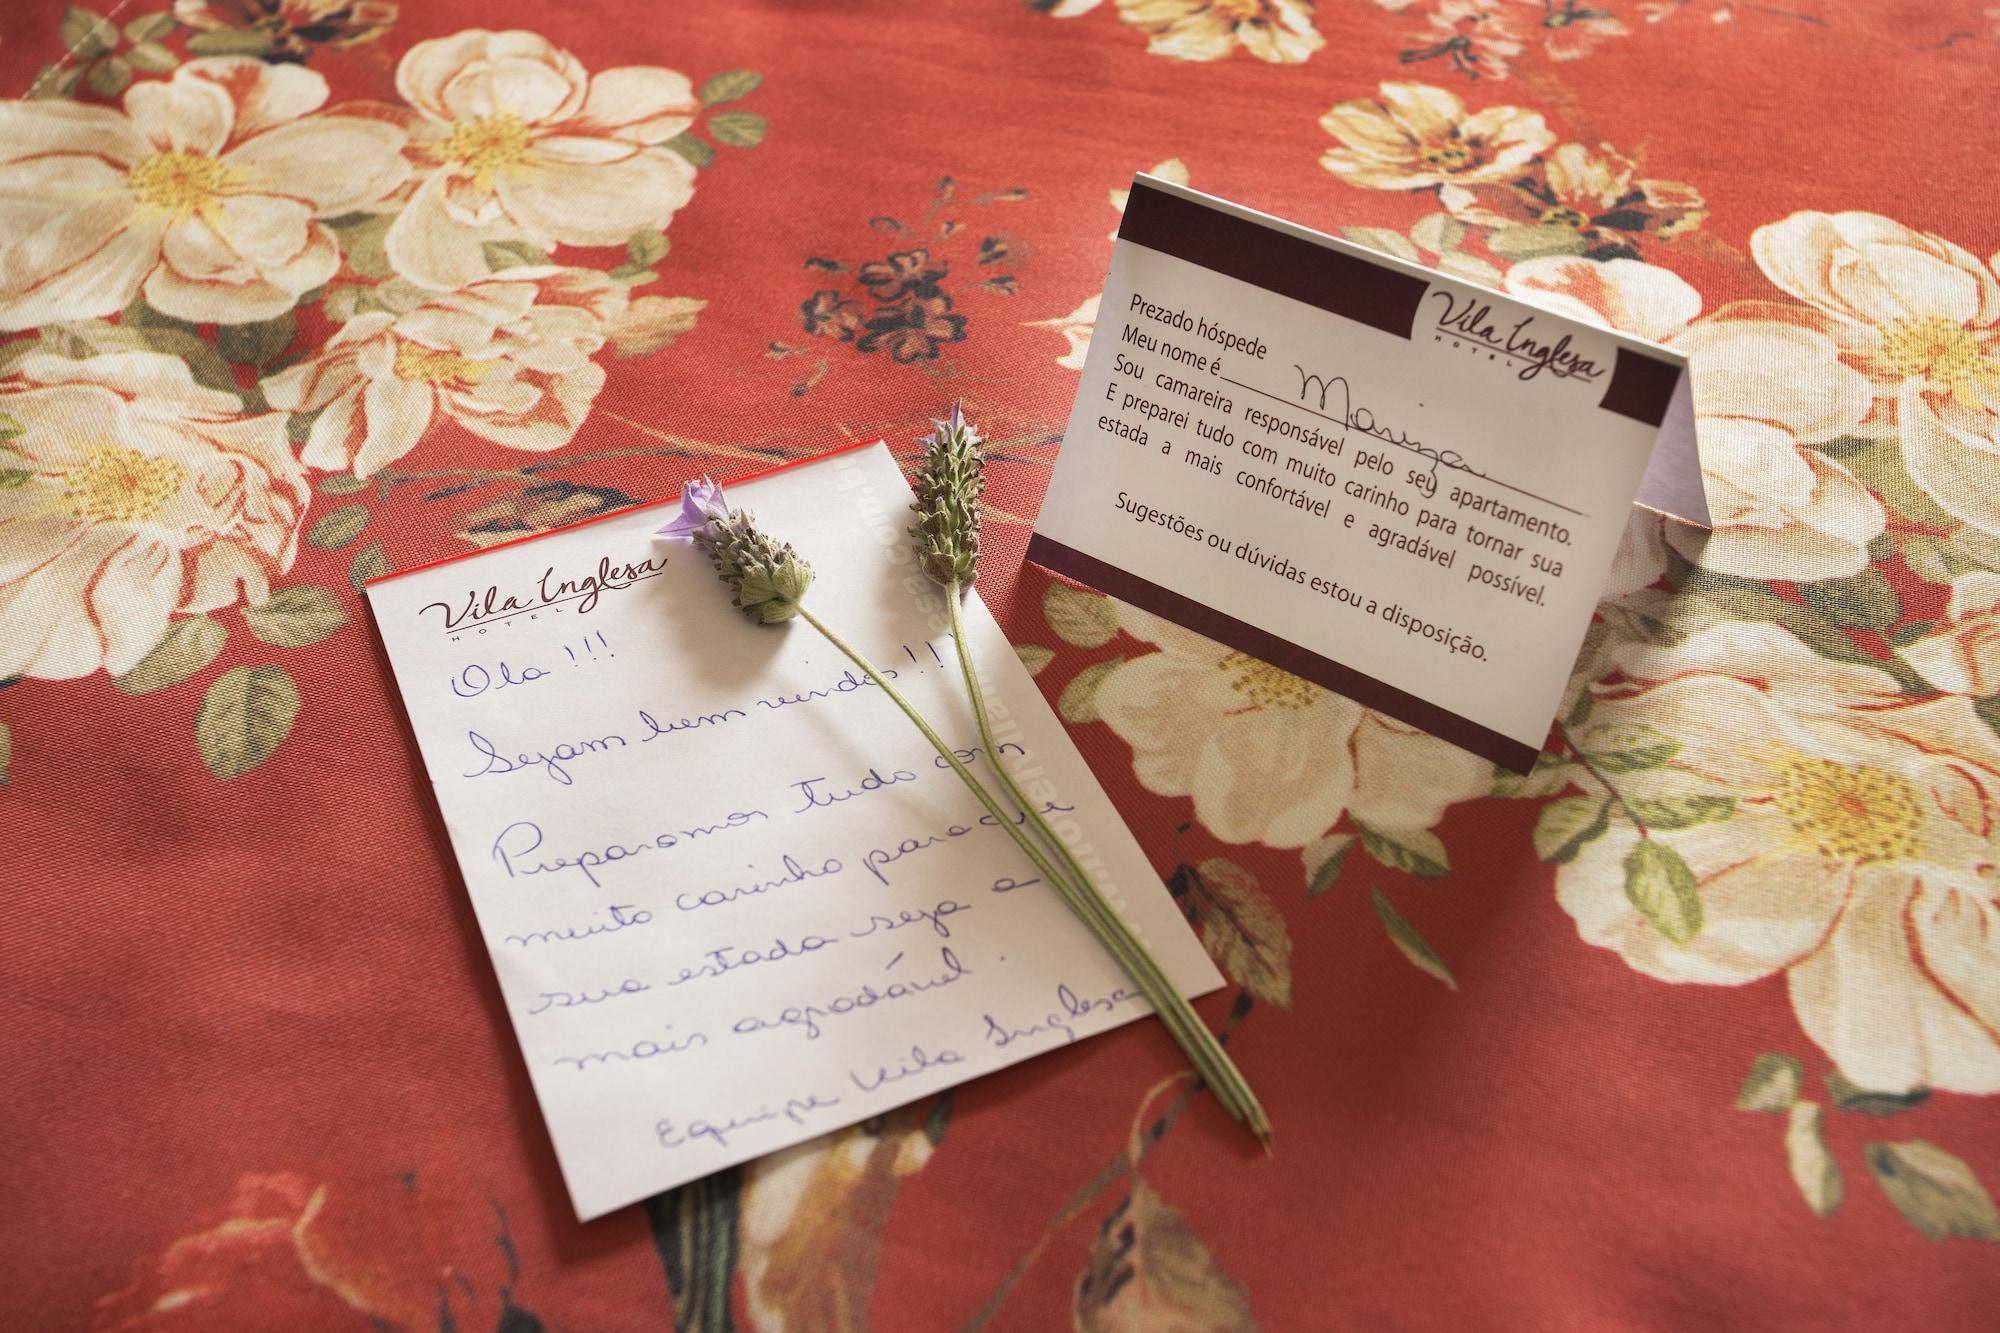 Vila Inglesa
HOTEL
Ola !!!
Sejam bem vindos !!
Preparamos tudo com
muito carinho para que
sua estada seja a
mais agradável.
Equipe Vila Inglesa
Vila Inglesa
HOTEL
Prezado hóspede
Meu nome é Mariza
Sou camareira responsável pelo seu apartamento.
E preparei tudo com muito carinho para tornar sua
estada a mais confortável e agradável possível.
Sugestões ou dúvidas estou a disposição.